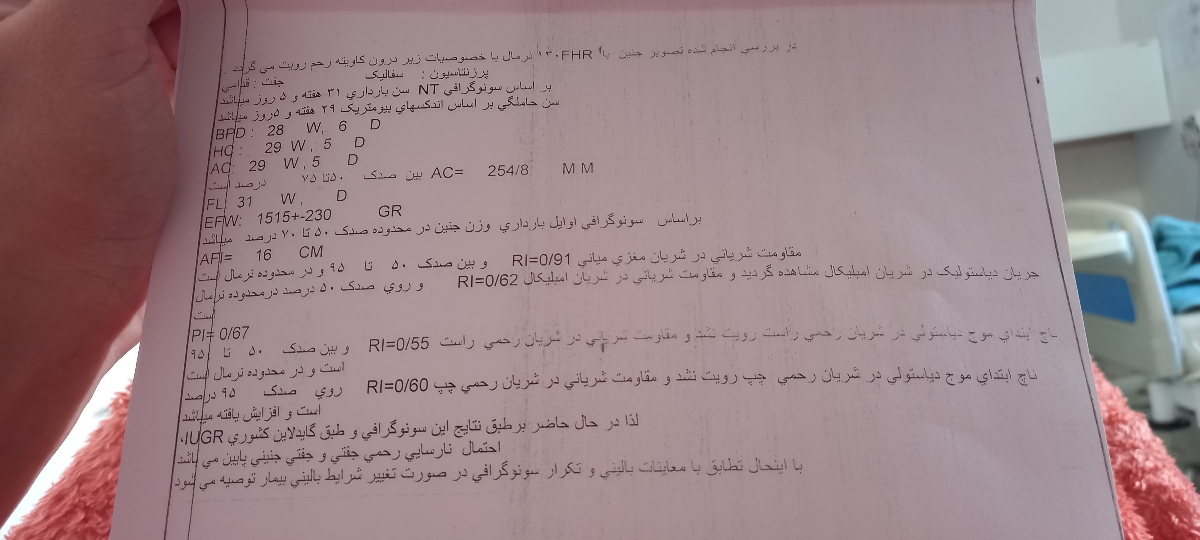 در بررسي انجام شده تصوير جنين با ۱۳۰FHR نرمال با خصوصيات زير درون کاويته رحم رويت مي گردد .
پرزنتاسيون : سفاليک جفت : قدامي
بر اساس سونوگرافي NT سن بارداري ۳۱ هفته و ۵ روز ميباشد
سن حاملگي بر اساس اندکسهاي بيومتريک ۲۹ هفته و ۵روز ميباشد
BPD : 28 W, 6 D
HC : 29 W , 5 D
AC: 29 W , 5 D
AC= 254/8 M M بين صدک ۵۰تا ۷۵ درصد است
FL: 31 W , D
EFW: 1515+-230 GR
براساس سونوگرافي اوايل بارداري وزن جنين در محدوده صدک ۵۰ تا ۷۰ درصد ميباشد
AFI= 16 CM
مقاومت شرياني در شريان مغزي مياني RI=0/91 و بين صدک ۵۰ تا ۹۵ و در محدوده نرمال است
جريان دياستوليک در شريان امبليکال مشاهده گرديد و مقاومت شرياني در شريان امبليکال RI=0/62 و روي صدک ۵۰ درصد درمحدوده نرمال
است
PI= 0/67
ناچ ابتداي موج دياستولي در شريان رحمي راست رويت نشد و مقاومت شرياني در شريان رحمي راست RI=0/55 و بين صدک ۵۰ تا ۹۵
است و در محدوده نرمال است
ناچ ابتداي موج دياستولي در شريان رحمي چپ رويت نشد و مقاومت شرياني در شريان رحمي چپ RI=0/60 روي صدک ۹۵ درصد
است و افزايش يافته ميباشد
لذا در حال حاضر برطبق نتايج اين سونوگرافي و طبق گايدلاين کشوري IUGR،
احتمال نارسايي رحمي جفتي و جفتي جنيني پايين مي باشد
با اينحال تطابق با معاينات باليني و تکرار سونوگرافي در صورت تغيير شرايط باليني بيمار توصيه مي شود